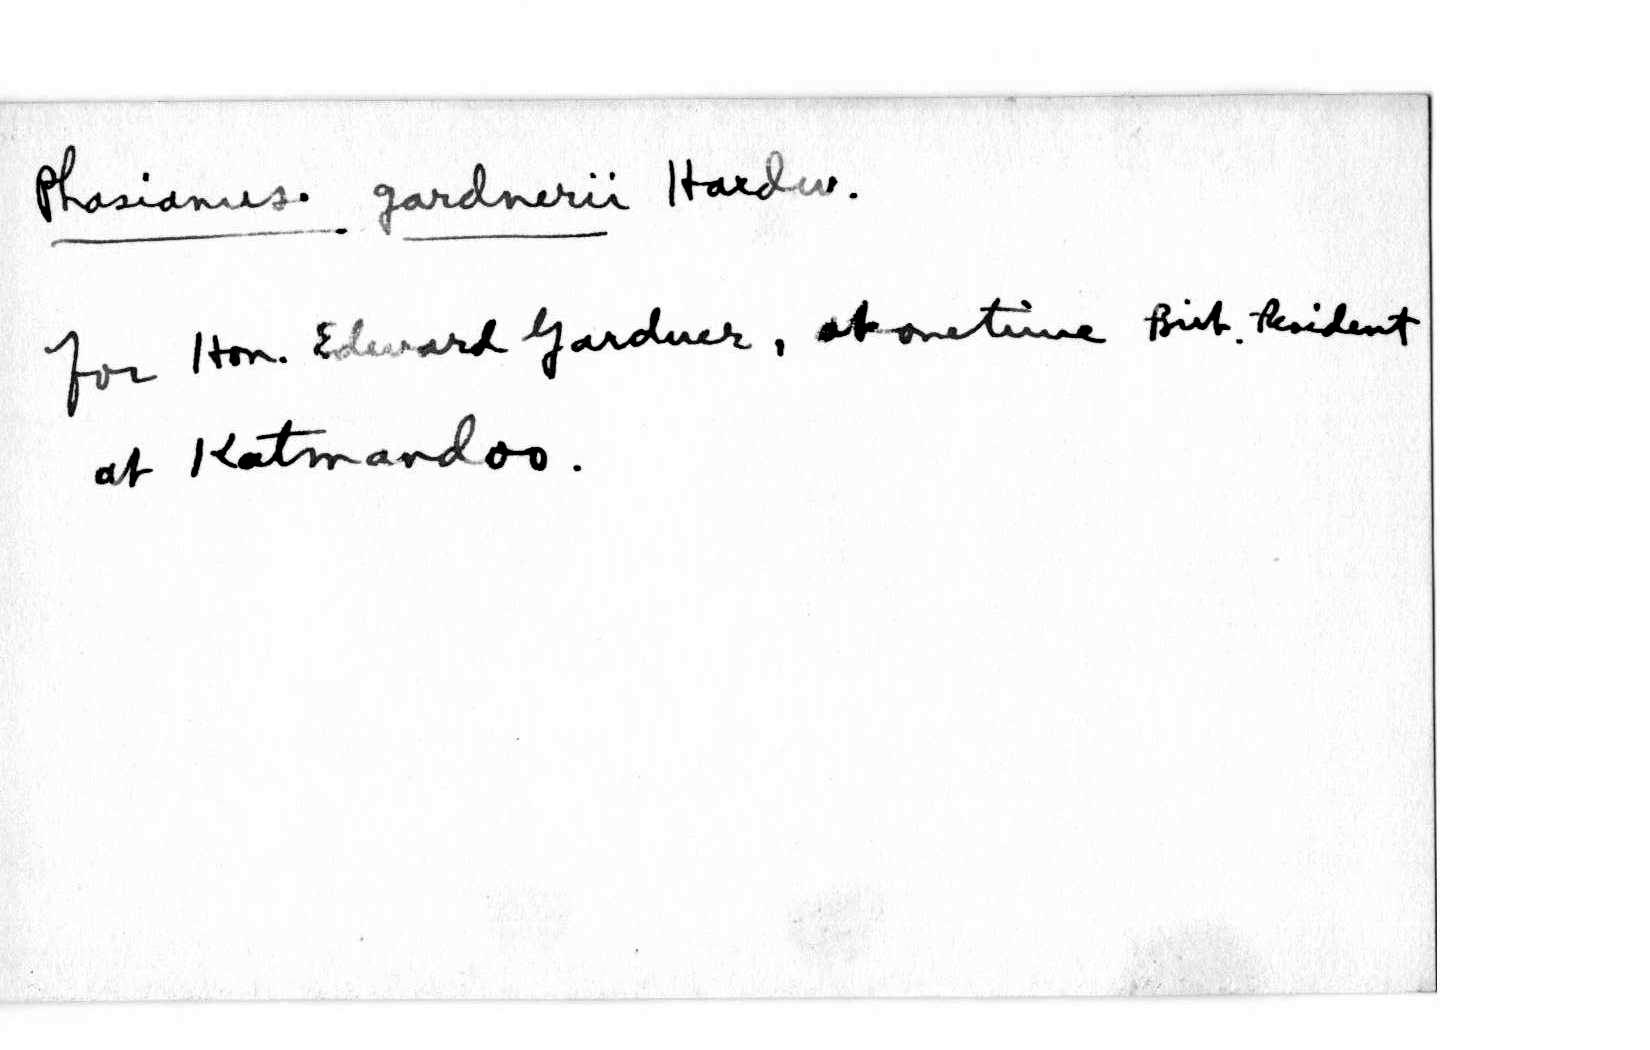 Phasianus. gardnerii Hardw.
for Hon. Edward Gardner, at one time Brit. Resident
at Katmandoo.